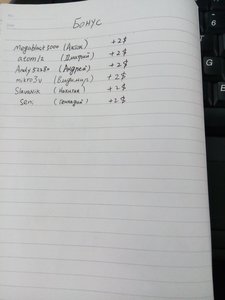 Бонус
Megablast2000 (Антон) +2$
atom12 (Дмитрий) +2$
Andy5228 (Андрей) +2$
mikro3v (Владимир) +2$
Slavanik (Николай) +2$
sen (Геннадий) +2$